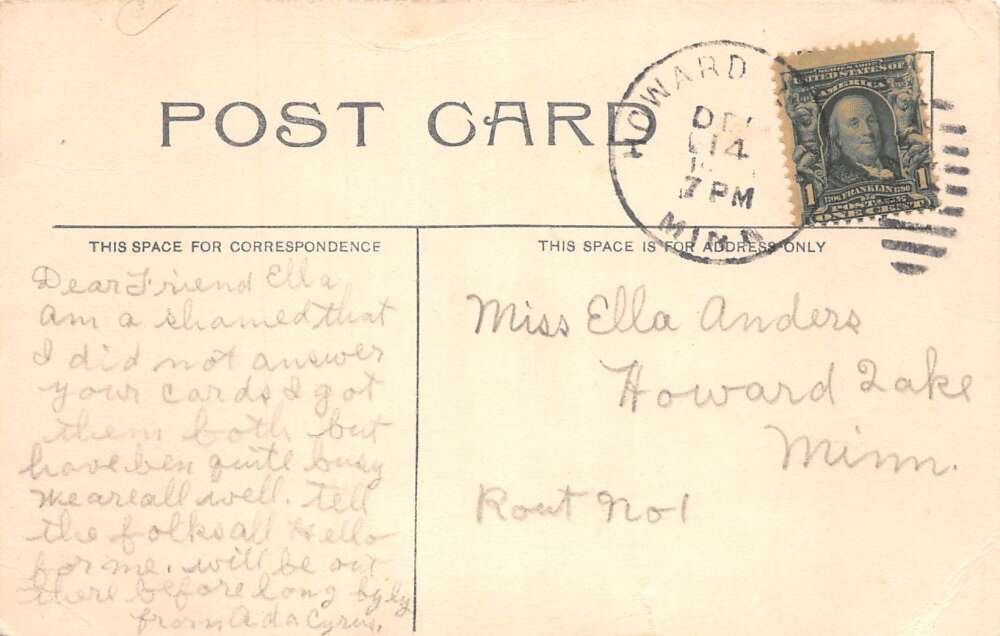 POST CARD
HOWARD
14
7 PM
MINN
SERIES 1902
UNITED STATES OF
AMERICA
1 1706 FRANKLIN 1790 1
POSTAGE
ONE CENT
THIS SPACE FOR CORRESPONDENCE
Dear Friend Ella
am a shamed that
I did not answer
your cards I got
them both but
have ben quite busy
We are all well. tell
the folks all Hello
for me. will be out
there before long by by
from Ada Cyrus.
THIS SPACE IS FOR ADDRESS ONLY
Miss Ella Anders
Howard Lake
Minn.
Rout No 1